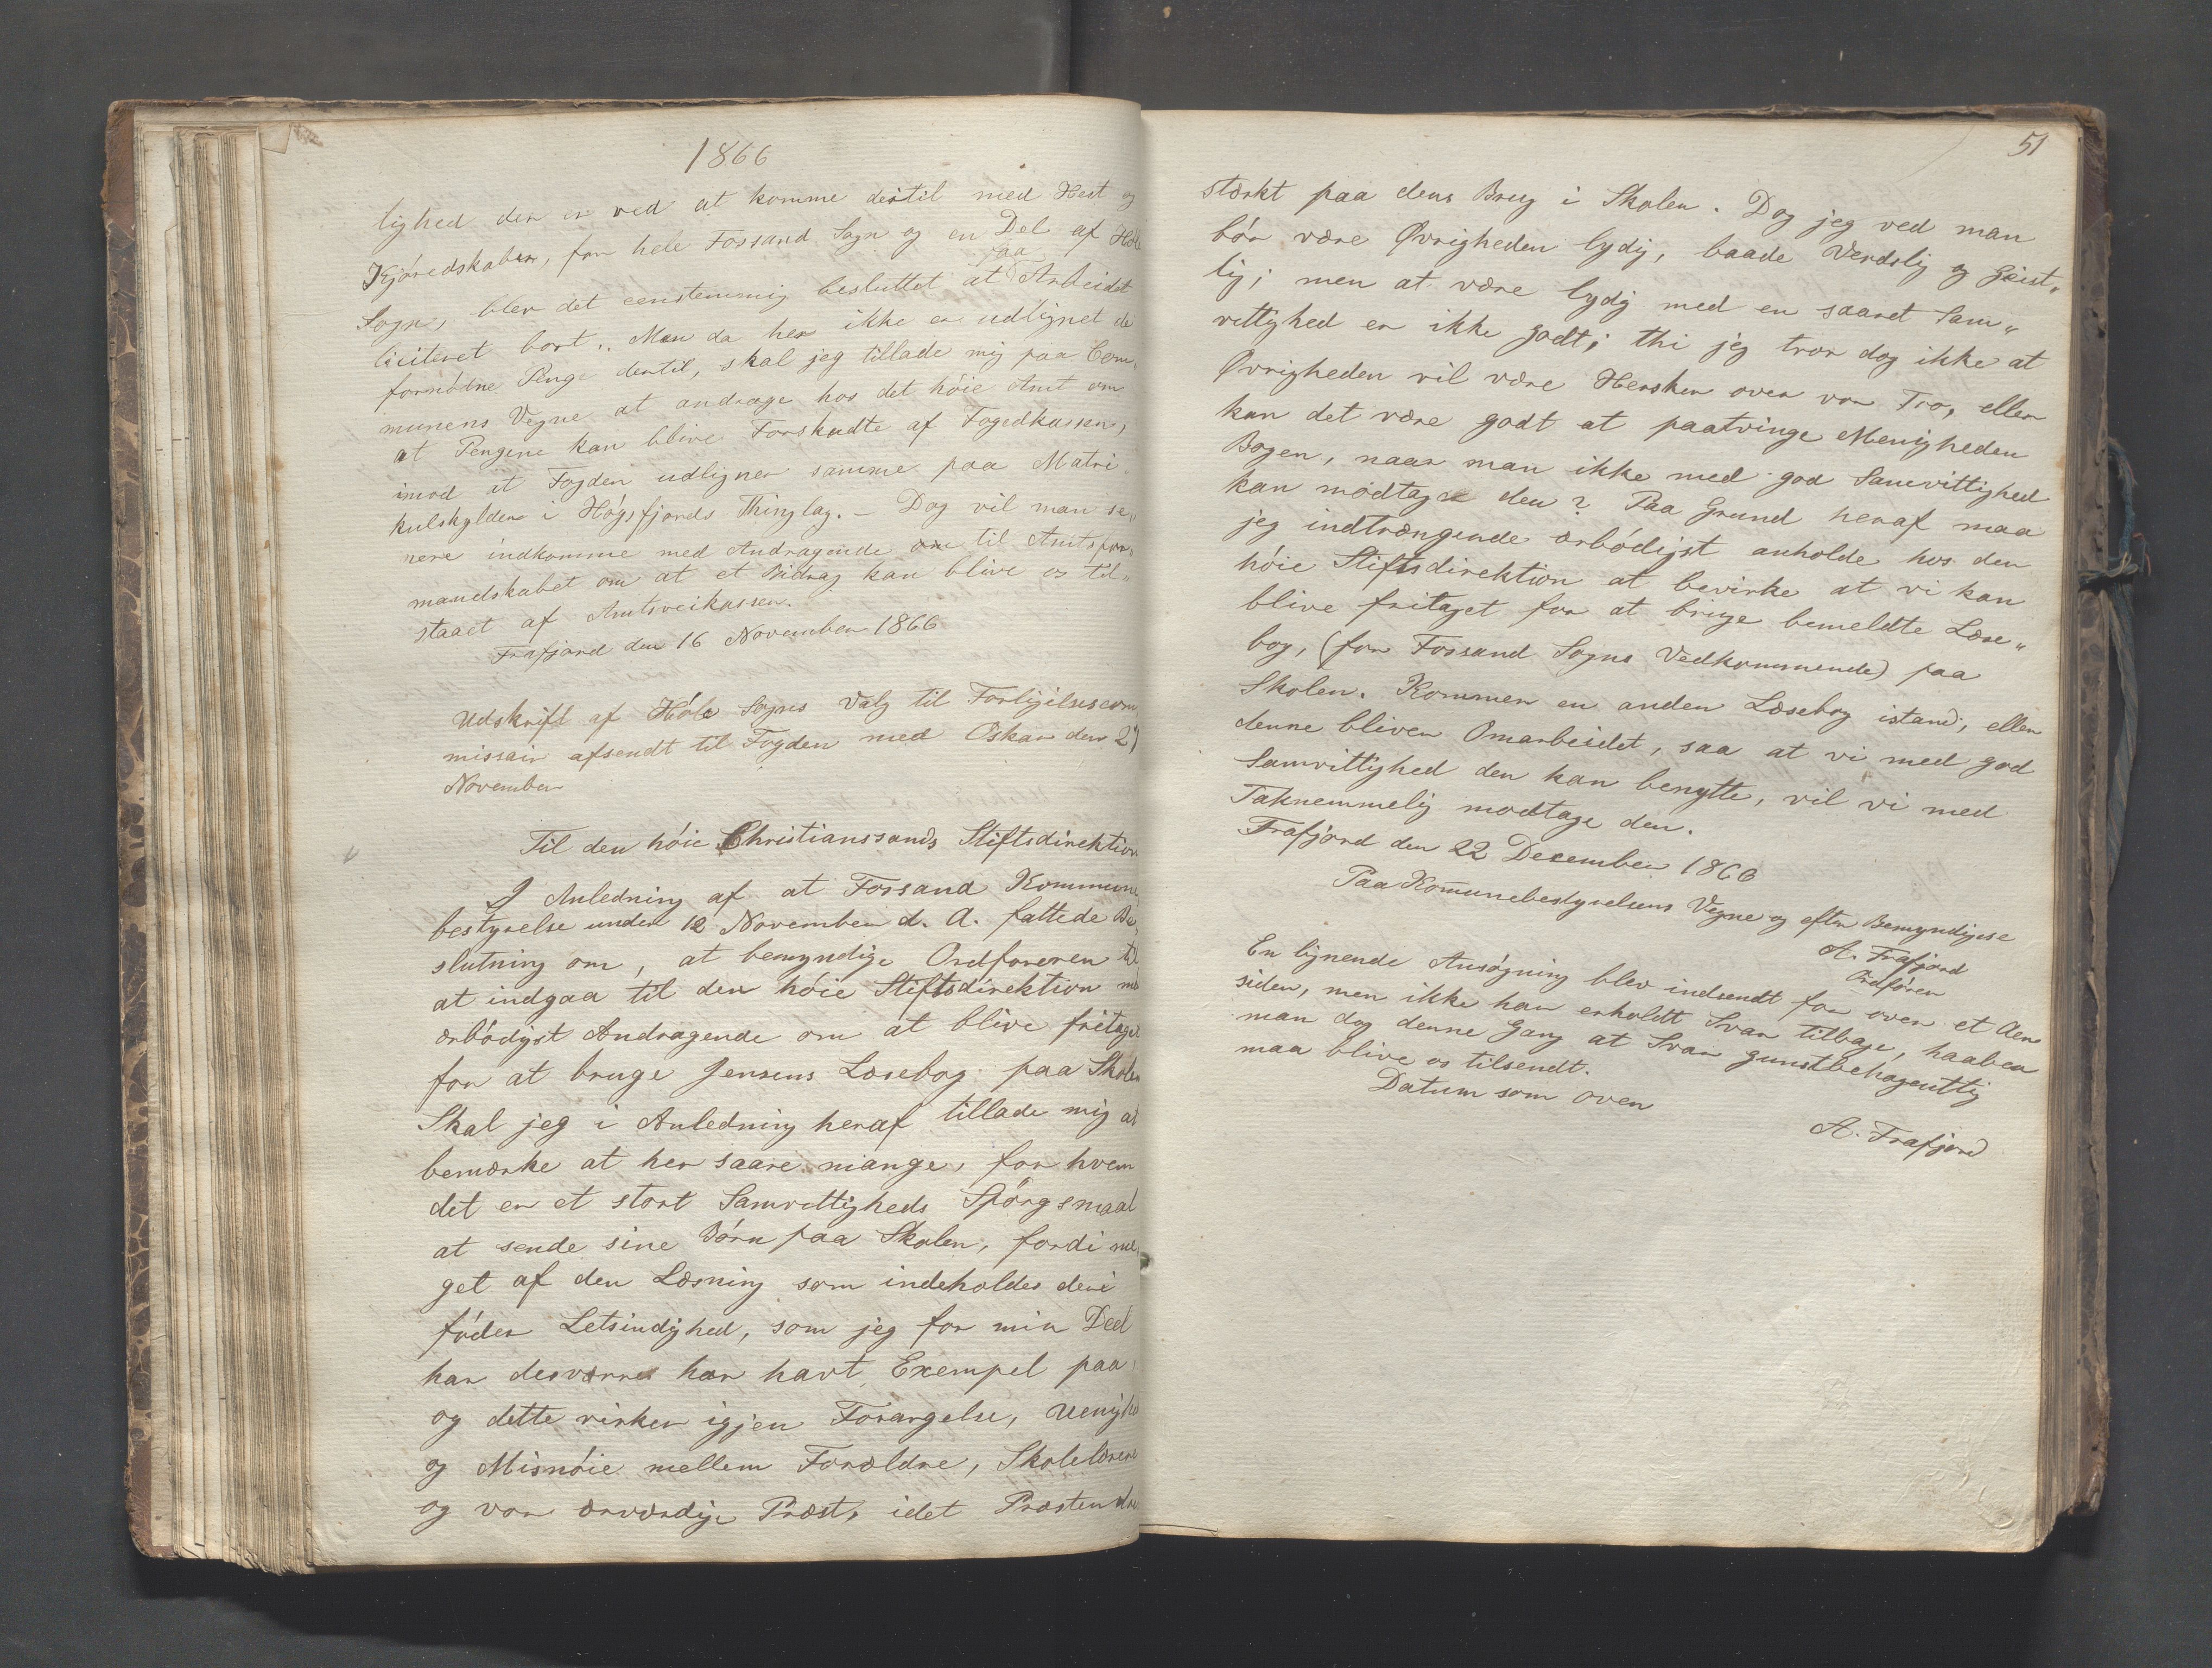 1866
lighed der er ved at komme dertil med Hest og
Kjøredskaber, for hele Fossand Sogn og en Del af Høle
Sogn, blev det eenstemmig besluttet at Arbeidet
faa
liciteret bort. Men da her ikke er udlignet de
fornødne Penge dertil, skal jeg tillade mig paa Com„
munens Vegne at andrage hos det høie Amt om
at Pengene kan blive Forskudte af Fogedkassen,
imod at Fogden udligner samme paa Matri„
kulskylden i Høgsfjords Thinglag. – Dog vil man se„
nere indkomme med Andragende om til Amtsfor„
mandskabet om at et Bidrag kan blive os til„
staaet af Amtsveikassen.
Frafjord den 16 November 1866
Udskrift af Høle Sogns Valg til Forligelsescom
missair afsendt til Fogden med Oskar den 27
November
Til den høie Christianssands Stiftsdirektion
I Anledning af at Fossand Kommune
bestyrelse under 12 November d. A. fattede Be„
slutning om, at bemyndige Ordføreren til
at indgaa til den høie Stiftsdirektion med
ærbødigst Andragende om at blive fritaget
for at bruge Jensens Læsebog paa Skolen
Skal jeg i Anledning heraf tillade mig at
bemærke at her saare mange, for hvem
det er et stort Samvittigheds Spørgsmaal
at sende sine Børn paa Skolen, fordi me„
get af den Læsning som indeholdes deri
føder Letsindighed, som jeg for min Deel
har desværre har havt Exempel paa,
og dette virker igjen Forargelse, Uenighed
og Misnøie mellem Forældre, Skolelærere
og vor ærværdige Præst, idet Præsten
51
stærkt paa dens Brug i Skolen. Dog jeg ved man
bør være Øvrigheden lydig, baade Verdslig og Geist„
lig; men at være lydig med en saaret Sam„
vittighed er ikke godt; thi jeg tror dog ikke at
Øvrigheden vil være Hersker over vor Tro, eller
kan det være godt at paatvinge Menigheden
Bogen, naar man ikke med god Samvittighed
kan modtage den? Paa Grund heraf maa
jeg indtrængende ærbødigst anholde hos den
høie Stiftsdirektion at bevirke at vi kan
blive fritaget for at bruge bemeldte Læse„
bog, (for Fossand Sogns Vedkommende) paa
Skolen. Kommer en anden Læsebog istand, eller
denne bliver Omarbeidet, saa at vi med god
Samvittighed den kan benytte, vil vi med
Taknemmelig modtage den.
Frafjord den 22 December 1866
Paa Komunebestyrelsens Vegne og efter Bemyndigese
A. Frafjord
Ordfører
En lignende Ansøgning blev indsendt for over et Aar
siden, men ikke har erholdt Svar tilbage, haaber
man dog denne Gang at Svar gunstbehageuttig
maa blive os tilsendt.
Datum som oven
A. Frafjord